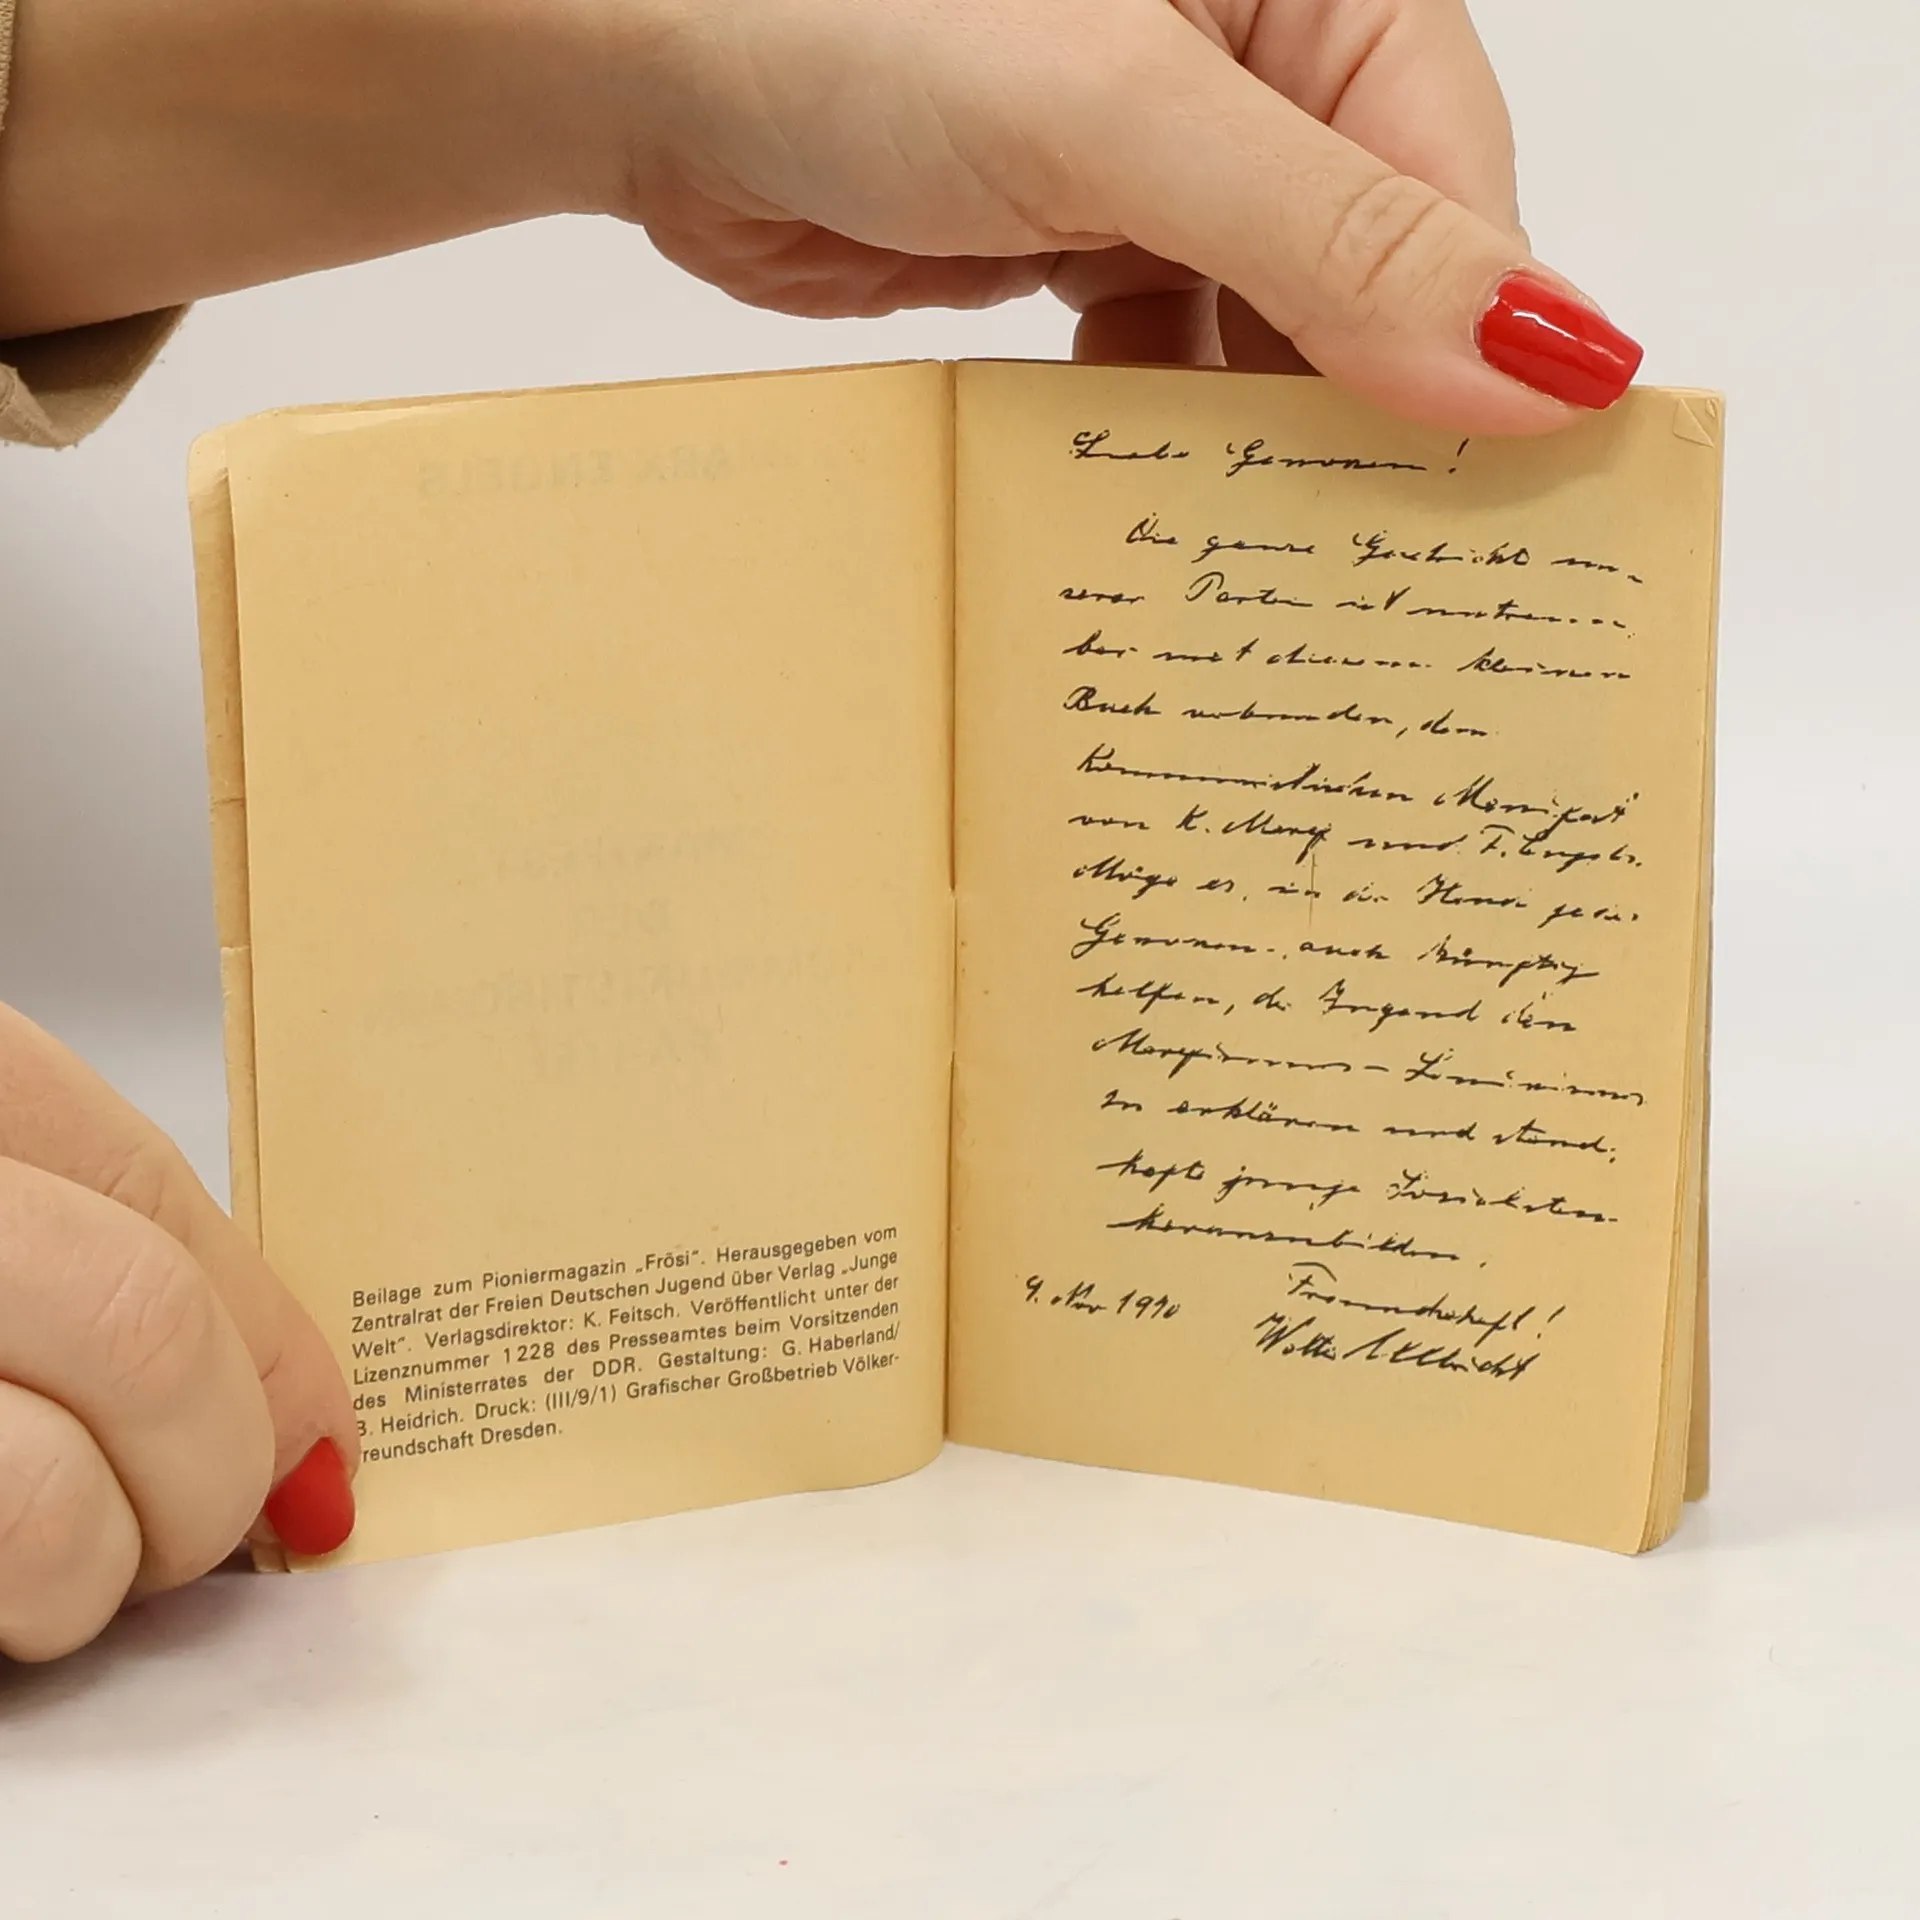 Beilage zum Pioniermagazin „Frösi“. Herausgegeben vom
Zentralrat der Freien Deutschen Jugend über Verlag „Junge
Welt“. Verlagsdirektor: K. Feitsch. Veröffentlicht unter der
Lizenznummer 1228 des Presseamtes beim Vorsitzenden
des Ministerrates der DDR. Gestaltung: G. Haberland/
B. Heidrich. Druck: (III/9/1) Grafischer Großbetrieb Völker-
freundschaft Dresden.
Liebe Genossen!
Die ganze Geschichte un-
serer Partei ist untrenn-
bar mit diesem kleinen
Buch verbunden, dem
Kommunistischen Manifest
von K. Marx und F. Engels.
Möge es, in der Hand jedes
Genossen, auch künftig
helfen, der Jugend den
Marxismus-Leninismus
zu erklären und stand-
hafte junge Sozialisten
heranzubilden.
Freundschaft!
9. Nov 1970
Walter Ulbricht